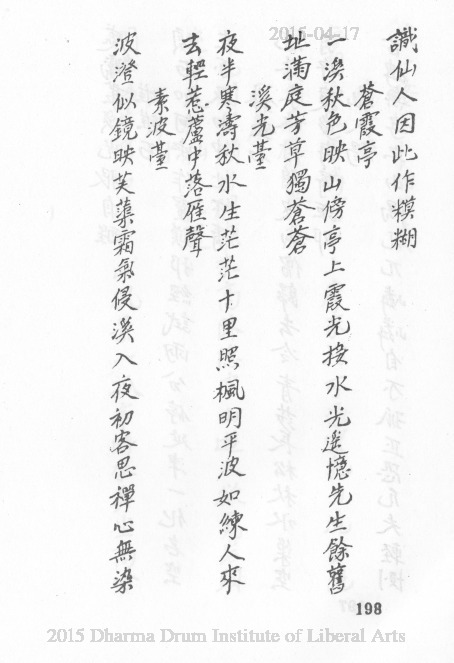 2015-04-17
識仙人因此作模糊
蒼霞亭
一溪秋色映山傍亭上霞光接水光遙憶先生餘舊
址滿庭芳草獨蒼蒼
溪光臺
夜半寒濤秋水生茫茫十里照楓明平波如練人來
去輕惹蘆中落雁聲
素波臺
波澄似鏡映芙蕖霜氣侵溪入夜初客思禪心無染
198
2015 Dharma Drum Institute of Liberal Arts